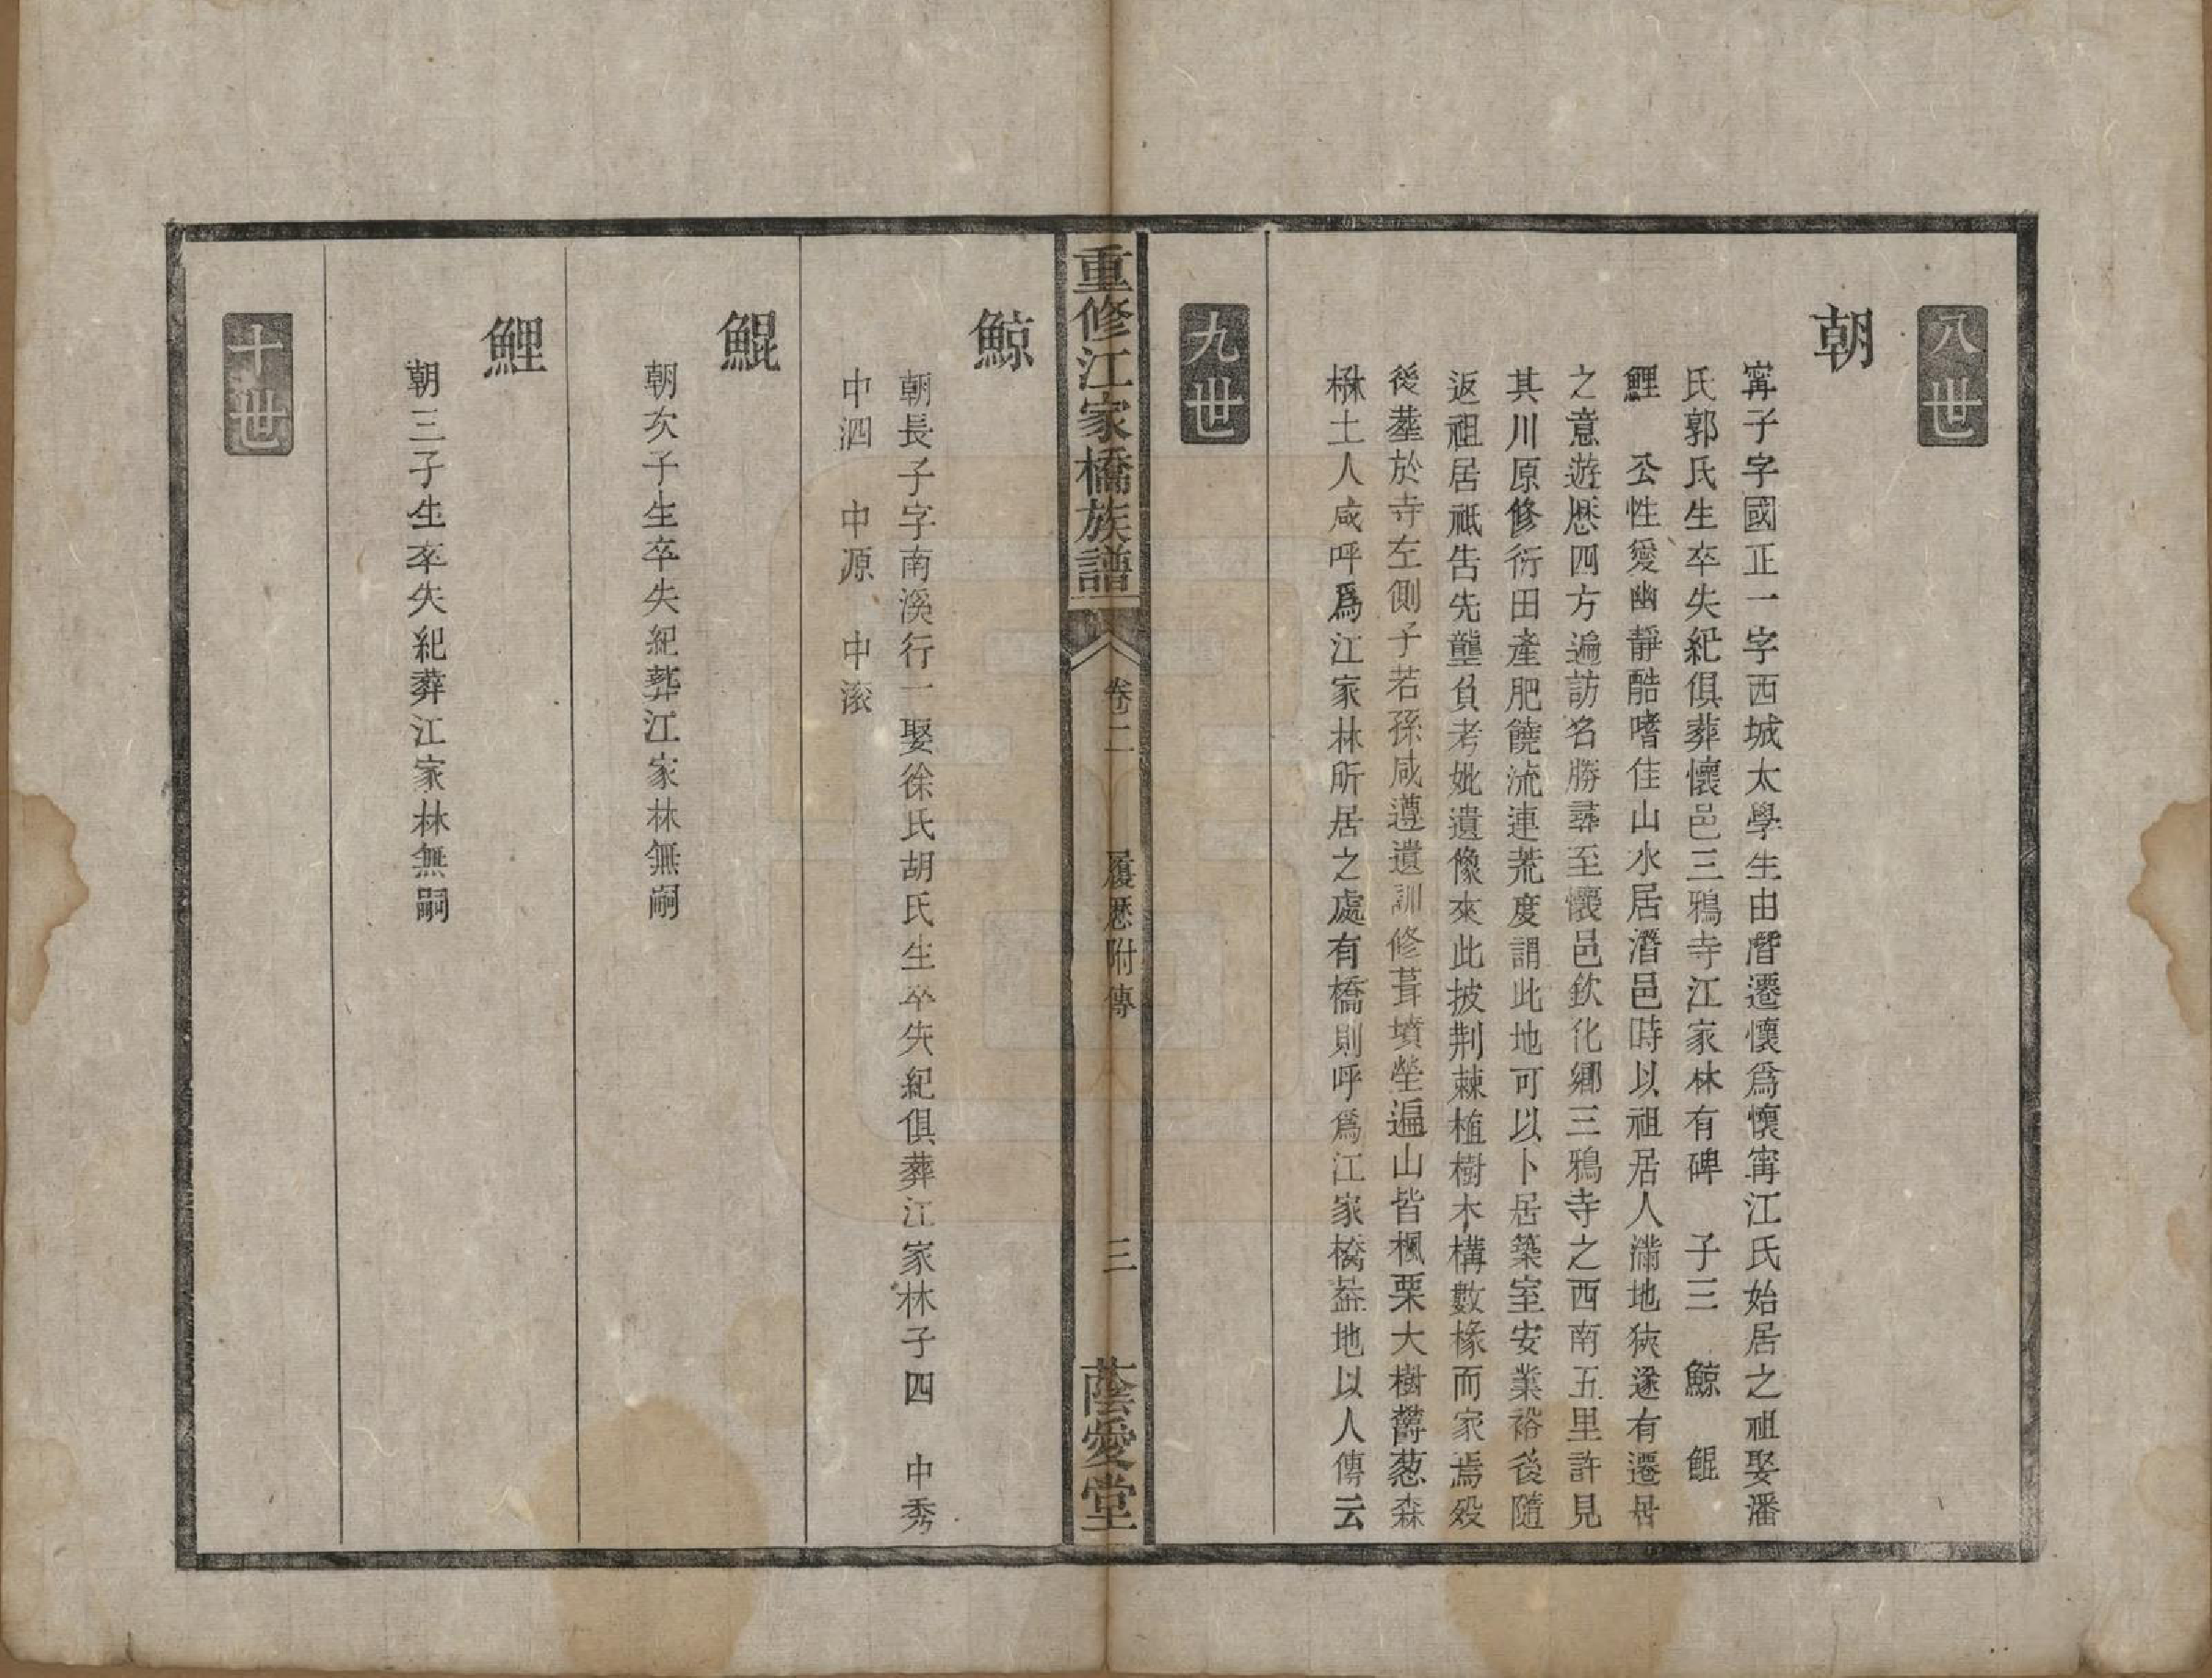 八世
朝
甯子字國正一字西城太學生由潛遷懷爲懷甯江氏始居之祖娶潘
氏郭氏生卒失紀俱葬懷邑三鴉寺江家林有碑　子三　鯨　鯤
鯉　公性愛幽靜酷嗜佳山水居潛邑時以祖居人滿地狹遂有遷居
之意遊歷四方遍訪名勝尋至懷邑欽化鄉三鴉寺之西南五里許見
其川原修衍田產肥饒流連荒度謂此地可以卜居築室安業裕後隨
返祖居祗告先壟負考妣遺像來此披荆棘植樹木構數椽而家焉歿
後塟於寺左側子若孫咸遵遺訓修葺墳塋遍山皆楓栗大樹欝葱森
楙土人咸呼爲江家林所居之處有橋則呼爲江家橋葢地以人傳云
九世
重修江家橋族譜　卷二　履歷附傳　三　蔭愛堂
鯨
朝長子字南溪行一娶徐氏胡氏生卒失紀俱葬江家林子四　中秀
中泗　中源　中滚
鯤
朝次子生卒失紀葬江家林無嗣
鯉
朝三子生卒失紀葬江家林無嗣
十世